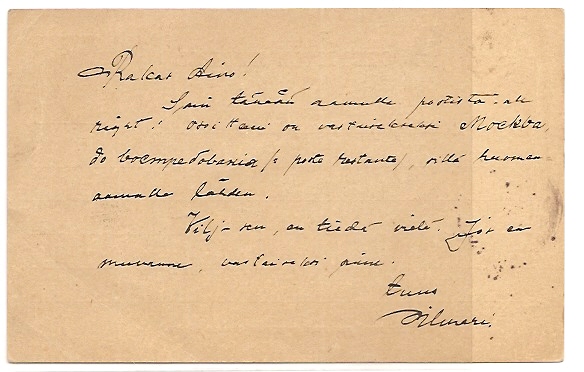 Rakas Aino!
Sain tänään aamulla postista - all
right! Osoitteni on vastaiseksi Москва,
до востребования (: poste restante), sillä huomen
aamulla lähden.
Vilj- en tiedä vielä. Jos en
muuanne, vastaiseksi sinne.
tuus
Ilmari.